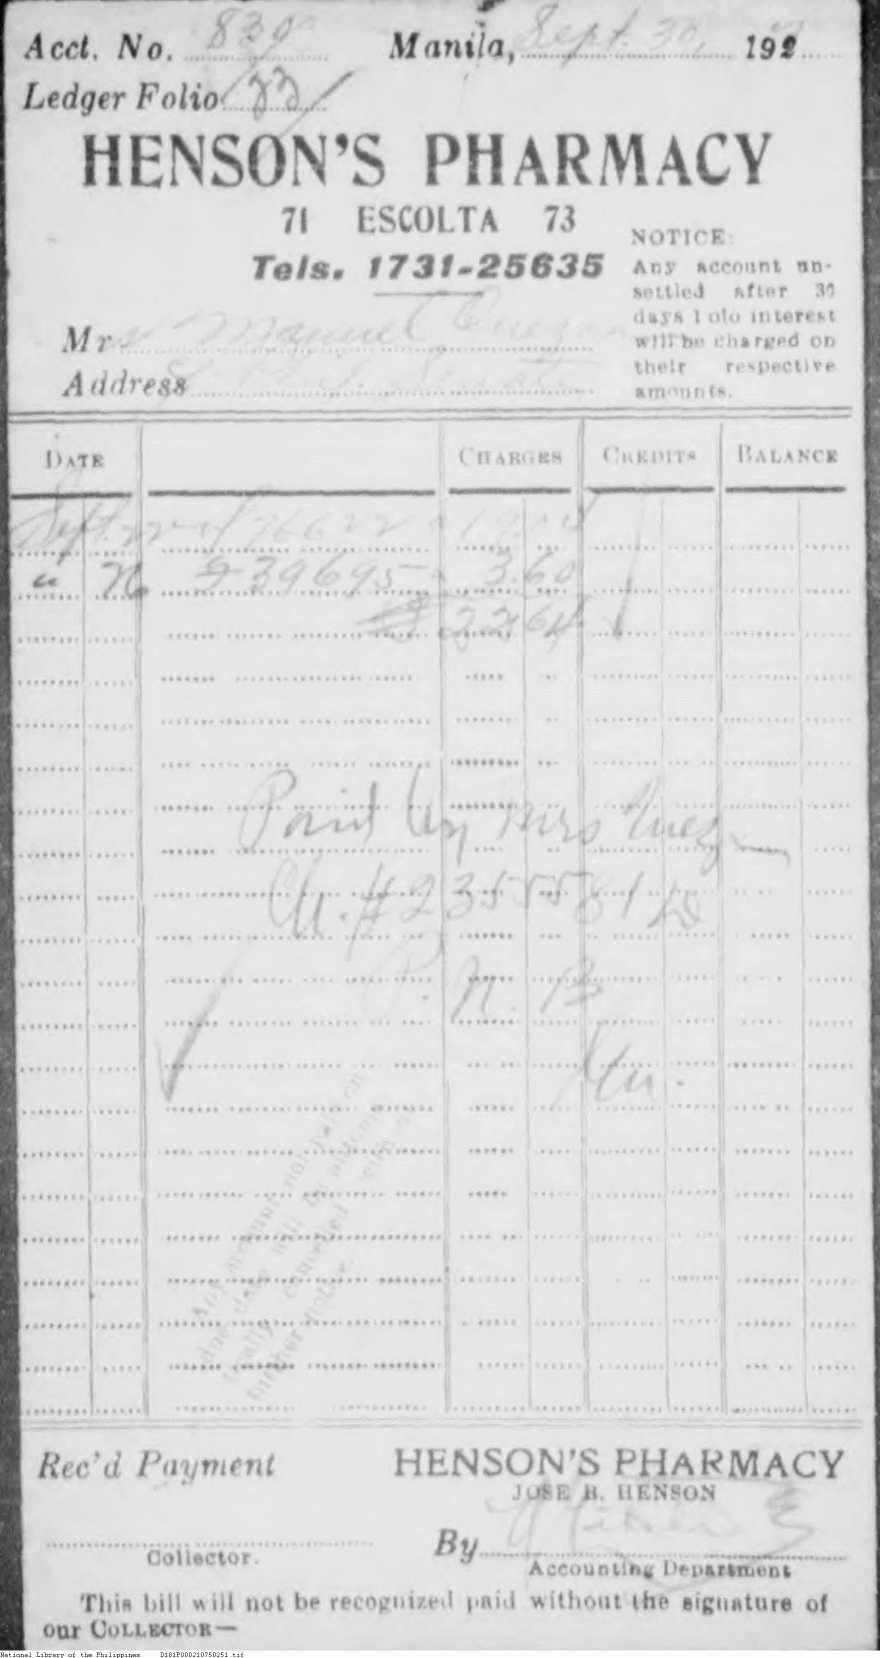 Acct. No. 830 Manila, Sept. 30, 192
Ledger Folio 33
HENSON'S PHARMACY
71 ESCOLTA 73
Tels. 1731-25635
NOTICE:
Any account un-
settled after 30
days 1 o|o interest
will be charged on
their respective
amounts.
Mrs Manuel Quezon
Address P. I. Senate
DATE CHARGES CREDITS BALANCE
Sept. 22 36622 19.04
" 239695 3.60
22.64
Paid by Mrs Quezon
Ch. #235581 D
P. N. B
Any account not paid on
due date will be automa-
tically cancelled with
further notice.
Rec'd Payment
HENSON'S PHARMACY
JOSE B. HENSON
Collector.
By
Accounting Department
This bill will not be recognized paid without the signature of
our COLLECTOR—
National Library of the Philippines D181P000210750251.tif